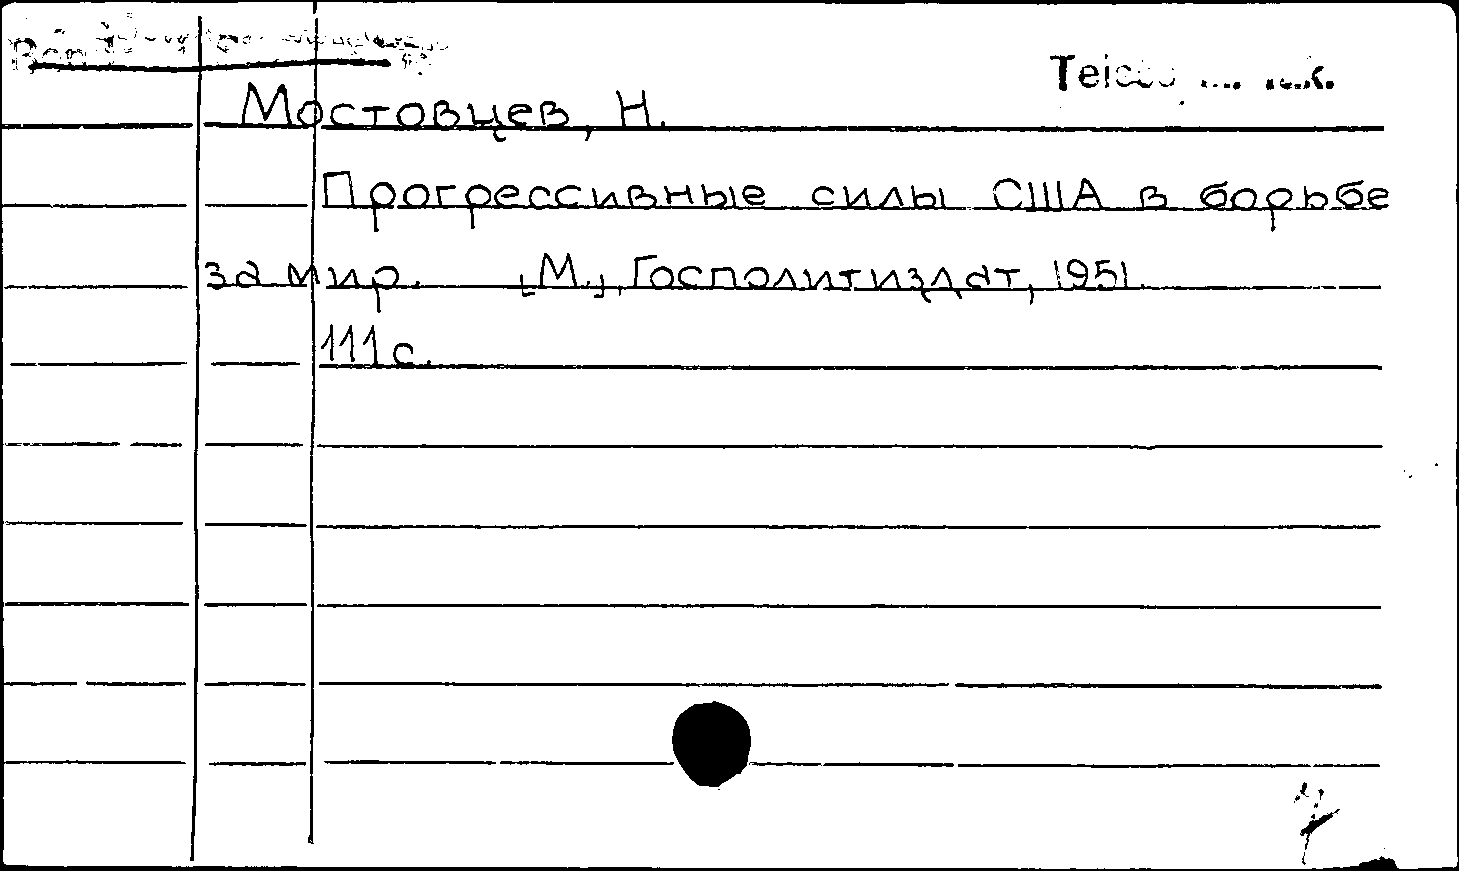 Мостовцев, Н.
Прогрессивные силы США в борьбе
за мир. [М.], Госполитиздат, 1951.
111 с.